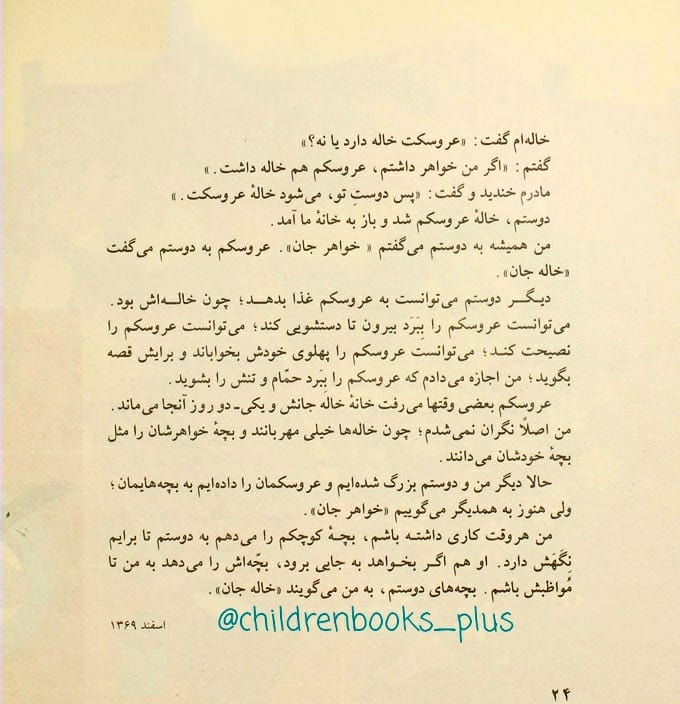 خاله‌ام گفت: «عروسکت خاله دارد یا نه؟»
گفتم: «اگر من خواهر داشتم، عروسکم هم خاله داشت.»
مادرم خندید و گفت: «پس دوستِ تو، می‌شود خالهٔ عروسکت.»
دوستم، خالهٔ عروسکم شد و باز به خانهٔ ما آمد.
من همیشه به دوستم می‌گفتم «خواهر جان». عروسکم به دوستم می‌گفت
«خاله جان».
دیگر دوستم می‌توانست به عروسکم غذا بدهد؛ چون خاله‌اش بود.
می‌توانست عروسکم را بِبَرَد بیرون تا دستشویی کند؛ می‌توانست عروسکم را
نصیحت کند؛ می‌توانست عروسکم را پهلوی خودش بخواباند و برایش قصه
بگوید؛ من اجازه می‌دادم که عروسکم را بِبَرد حمّام و تنش را بشوید.
عروسکم بعضی وقتها می‌رفت خانهٔ خاله جانش و یکی ـ دو روز آنجا می‌ماند.
من اصلاً نگران نمی‌شدم؛ چون خاله‌ها خیلی مهربانند و بچهٔ خواهرشان را مثل
بچهٔ خودشان می‌دانند.
حالا دیگر من و دوستم بزرگ شده‌ایم و عروسکمان را داده‌ایم به بچه‌هایمان؛
ولی هنوز به همدیگر می‌گوییم «خواهر جان».
من هروقت کاری داشته باشم، بچهٔ کوچکم را می‌دهم به دوستم تا برایم
نِگَهَش دارد. او هم اگر بخواهد به جایی برود، بچّه‌اش را می‌دهد به من تا
مُواظبش باشم. بچه‌های دوستم، به من می‌گویند «خاله جان».
اسفند ۱۳۶۹
@childrenbooks_plus
۲۴